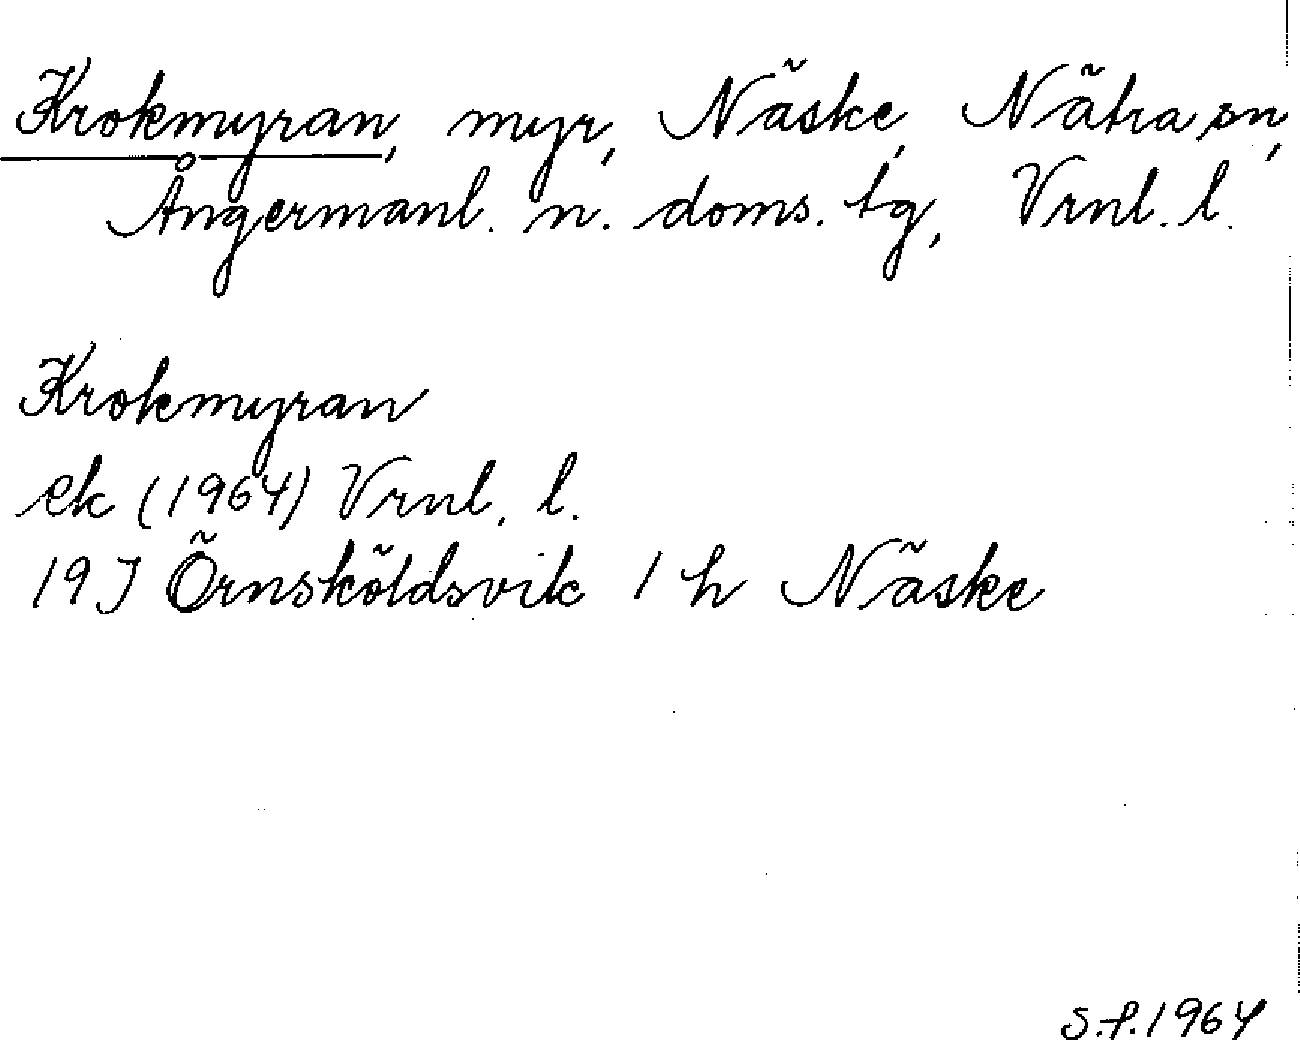 Krokmyran, myr, Näske, Nätra sn,
Ångermanl. n. doms. tg, Vrnl. l.
Krokmyran
ek (1964) Vrnl. l.
19J Örnsköldsvik 1 h Näske
S.f. 1964